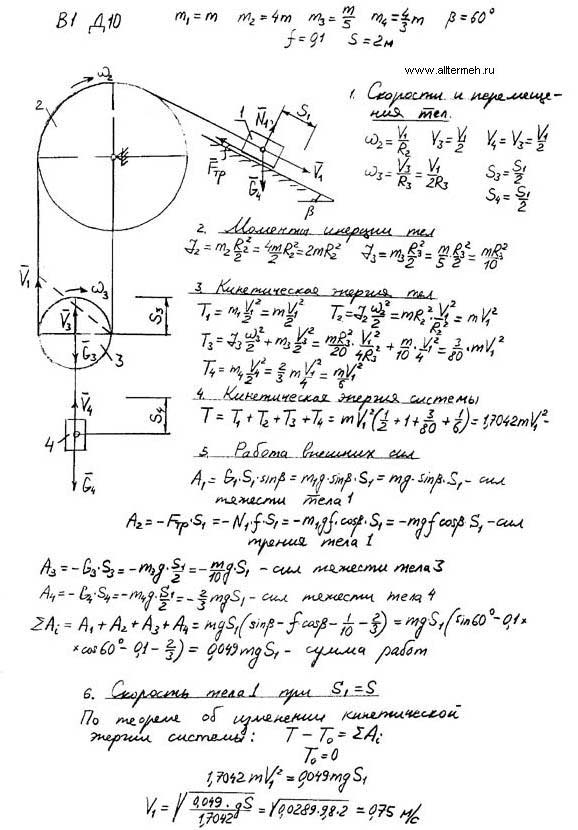 В1 Д10 m₁ = m m₂ = 4m m₃ = m/5 m₄ = 4/3 m β = 60°
f = 0,1 S = 2м
www.alltermeh.ru
1. Скорости и перемеще-
ния тел.
ω₂ = V₁/R₂ V₃ = V₁/2 V₄ = V₃ = V₁/2
ω₃ = V₃/R₃ = V₁/2R₃ S₃ = S₁/2
S₄ = S₁/2
ω₂
2
1
N₁
S₁
Fтр
V₁
G₄
β
2. Моменты инерции тел
J₂ = m₂R₂²/2 = 4mR₂²/2 = 2mR₂² J₃ = m₃R₃²/2 = m/5·R₃²/2 = mR₃²/10
V₁
ω₃
V₃
G₃
3
S₃
V₄
4
S₄
G₄
3. Кинетическая энергия тел
T₁ = m₁V₁²/2 = mV₁²/2 T₂ = J₂ω₂²/2 = mR₂²·V₁²/R₂² = mV₁²
T₃ = J₃ω₃²/2 + m₃V₃²/2 = mR₃²/20·V₁²/4R₃² + m/10·V₁²/4 = 3/80·mV₁²
T₄ = m₄V₄²/2 = 2/3 mV₁²/4 = mV₁²/6
4. Кинетическая энергия системы
T = T₁ + T₂ + T₃ + T₄ = mV₁²(1/2 + 1 + 3/80 + 1/6) = 1,7042mV₁²
5. Работа внешних сил
A₁ = G₁·S₁·sinβ = m₁g·sinβ·S₁ = mg·sinβ·S₁ - сил
тяжести тела 1
A₂ = -Fтр·S₁ = -N₁·f·S₁ = -m₁gf·cosβ·S₁ = -mgf cosβ·S₁ - сил
трения тела 1
A₃ = -G₃·S₃ = -m₃g·S₁/2 = -m/10 g·S₁ - сил тяжести тела 3
A₄ = -G₄·S₄ = -m₄g·S₁/2 = -2/3 mgS₁ - сил тяжести тела 4
ΣAᵢ = A₁ + A₂ + A₃ + A₄ = mgS₁(sinβ - f cosβ - 1/10 - 2/3) = mgS₁(sin60° - 0,1×
×cos60° - 0,1 - 2/3) = 0,049mgS₁ - сумма работ
6. Скорость тела 1 при S₁ = S
По теореме об изменении кинетической
энергии системы: T - T₀ = ΣAᵢ
T₀ = 0
1,7042 mV₁² = 0,049mgS₁
V₁ = √(0,049·gS/1,7042) = √(0,0289·9,8·2) = 0,75 м/с